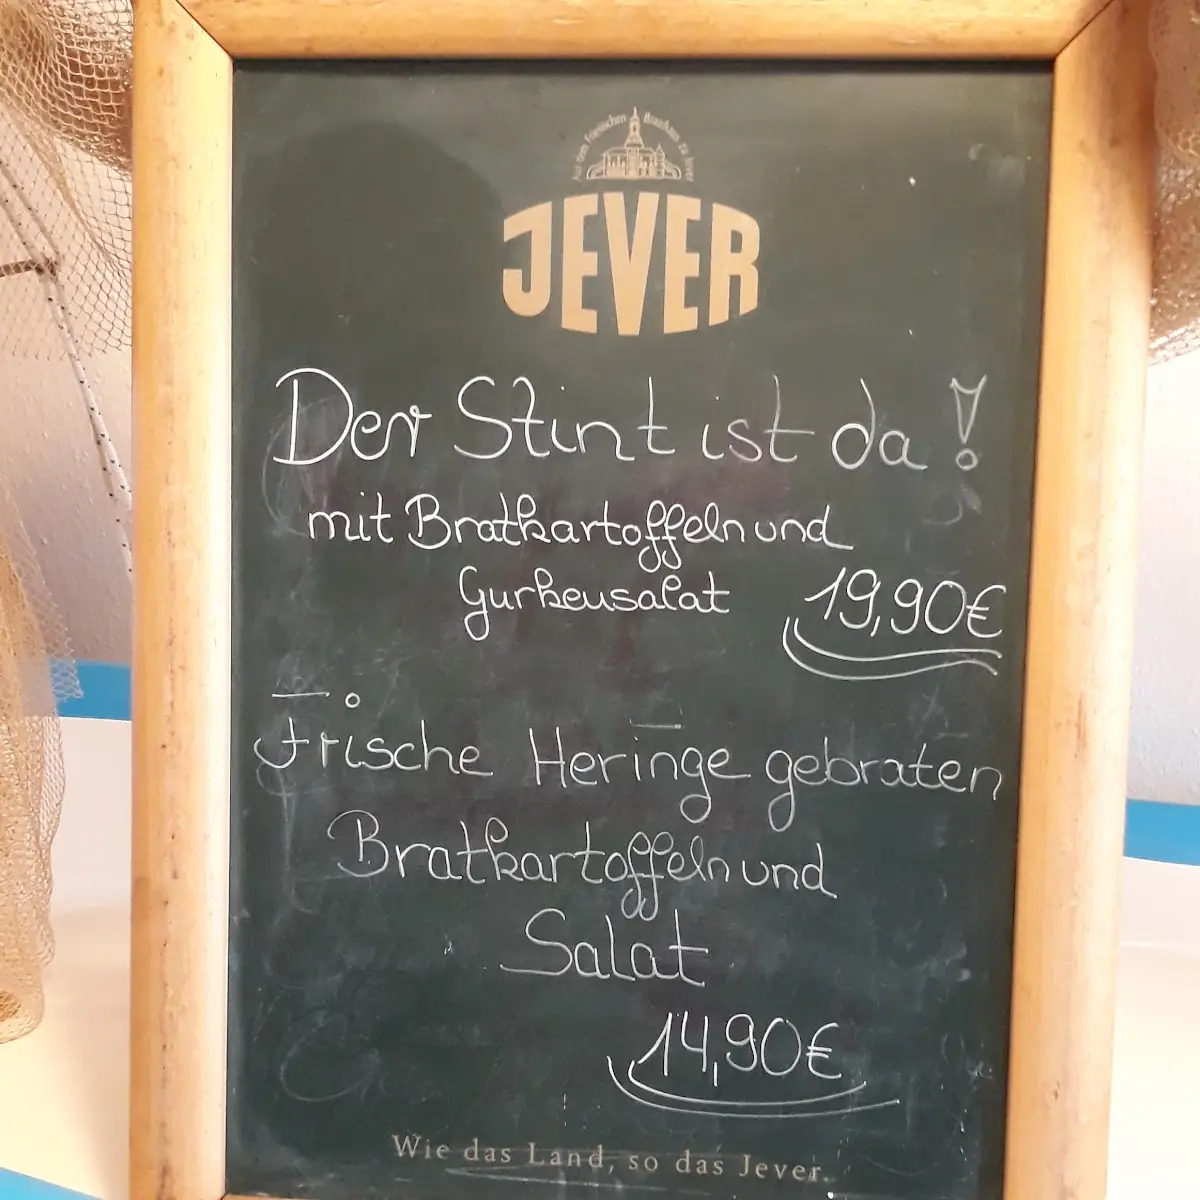 Aus dem Friesischen Brauhaus zu Jever
JEVER
Der Stint ist da!
mit Bratkartoffeln und
Gurkensalat 19,90€
Frische Heringe gebraten
Bratkartoffeln und
Salat
14,90€
Wie das Land, so das Jever.